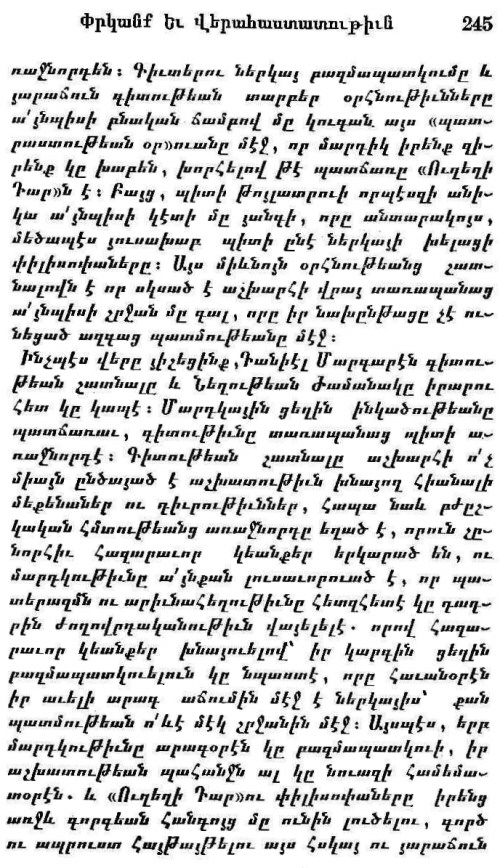 Փրկանք Եւ Վերահաստատութիւն 245
ռաջնորդեն։ Գիւտերու ներկայ բազմապատկումը և
յարաճուն գիտութեան տարբեր օրհնութիւնները
ա՛յնպիսի բնական ճամբով մը կուգան այս «պատ-
րաստութեան օր»ուանը մէջ, որ մարդիկ իրենք զի-
րենք կը խաբեն, խորհելով թէ պատճառը «Ուղեղի
Դար»ն է։ Բայց, պիտի թոյլատրուի որպէսզի անի-
կա ա՛յնպիսի կէտի մը յանգի, որը անտարակոյս,
մեծապէս յուսախաբ պիտի ընէ ներկայի խելացի
փիլիսոփաները։ Այս միևնոյն օրհնութեանց շատ-
նալովն է որ սկսած է աշխարհի վրայ տառապանաց
ա՛յնպիսի շրջան մը գալ, որը իր նախընթացը չէ ու-
նեցած ազգաց պատմութեանը մէջ։
Ինչպէս վերը յիշեցինք, Դանիէլ Մարգարէն գիտու-
թեան շատնալը և Նեղութեան Ժամանակը իրարու
հետ կը կապէ։ Մարդկային ցեղին ինկածութեանը
պատճառաւ, գիտութիւնը տառապանաց պիտի ա-
ռաջնորդէ։ Գիտութեան շատնալը աշխարհի ո՛չ
միայն ընծայած է աշխատութիւն խնայող հիանալի
մեքենաներ ու դիւրութիւններ, հապա նաև բժըշ-
կական հմտութեանց առաջնորդը եղած է, որուն շը-
նորհիւ հազարաւոր կեանքեր երկարած են, ու
մարդկութիւնը ա՛յնքան լուսաւորուած է, որ պա-
տերազմն ու արիւնահեղութիւնը հետզհետէ կը դադ-
րին ժողովրդականութիւն վայելելէ. որով հազա-
րաւոր կեանքեր խնայուելով՝ իր կարգին ցեղին
բազմապատկուելուն կը նպաստէ, որը հաւանօրէն
իր աւելի արագ աճումին մէջ է ներկայիս՝ քան
պատմութեան ո՛ևէ մէկ շրջանին մէջ։ Այսպէս, երբ
մարդկութիւնը արագօրէն կը բազմապատկուի, իր
աշխատութեան պահանջն ալ կը նուազի համեմա-
տօրէն. և «Ուղեղի Դար»ու փիլիսոփաները իրենց
առջև զորդեան հանգոյց մը ունին լուծելու, գործ
ու ապրուստ հայթայթելու այս հսկայ ու յարաճուն